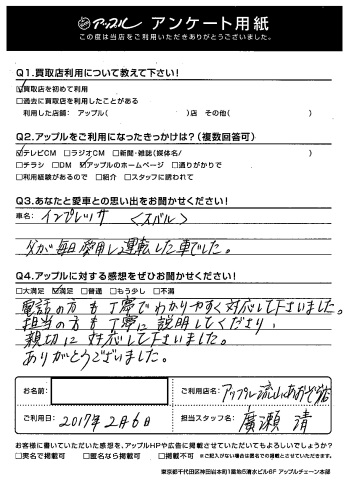 アップル アンケート用紙
この度は当店をご利用いただきありがとうございました。
Q1.買取店利用について教えて下さい!
☑買取店を初めて利用
□過去に買取店を利用したことがある
利用した店舗: アップル( )店 その他( )
Q2.アップルをご利用になったきっかけは?(複数回答可)
☑テレビCM □ラジオCM □新聞・雑誌(媒体名/ )
□チラシ □DM ☑アップルのホームページ □通りがかりで
□利用経験があるので □紹介 □スタッフに誘われて
Q3.あなたと愛車との思い出をお聞かせください!
車名: インプレッサ <スバル>
父が毎日愛用し運転した車でした。
Q4.アップルに対する感想をぜひお聞かせください!
□大満足 ☑満足 □普通 □もう少し □不満
電話の方も丁寧でわかりやすく対応して下さいました。
担当の方も丁寧に説明してくださり、
親切に対応して下さいました。
ありがとうございました。
お名前:
ご利用店名: アップル流山おおたか店
ご利用日: 2017年2月6日
担当スタッフ名: 廣瀬 清
お客様に書いていただいた感想を、アップルHPや広告に掲載させていただいてもよろしいでしょうか?
□実名で掲載可 □匿名なら掲載可 □掲載不可 ※ご記入がない場合は匿名での掲載とさせていただきます。
東京都千代田区神田岩本町1番地5清水ビル6F アップルチェーン本部